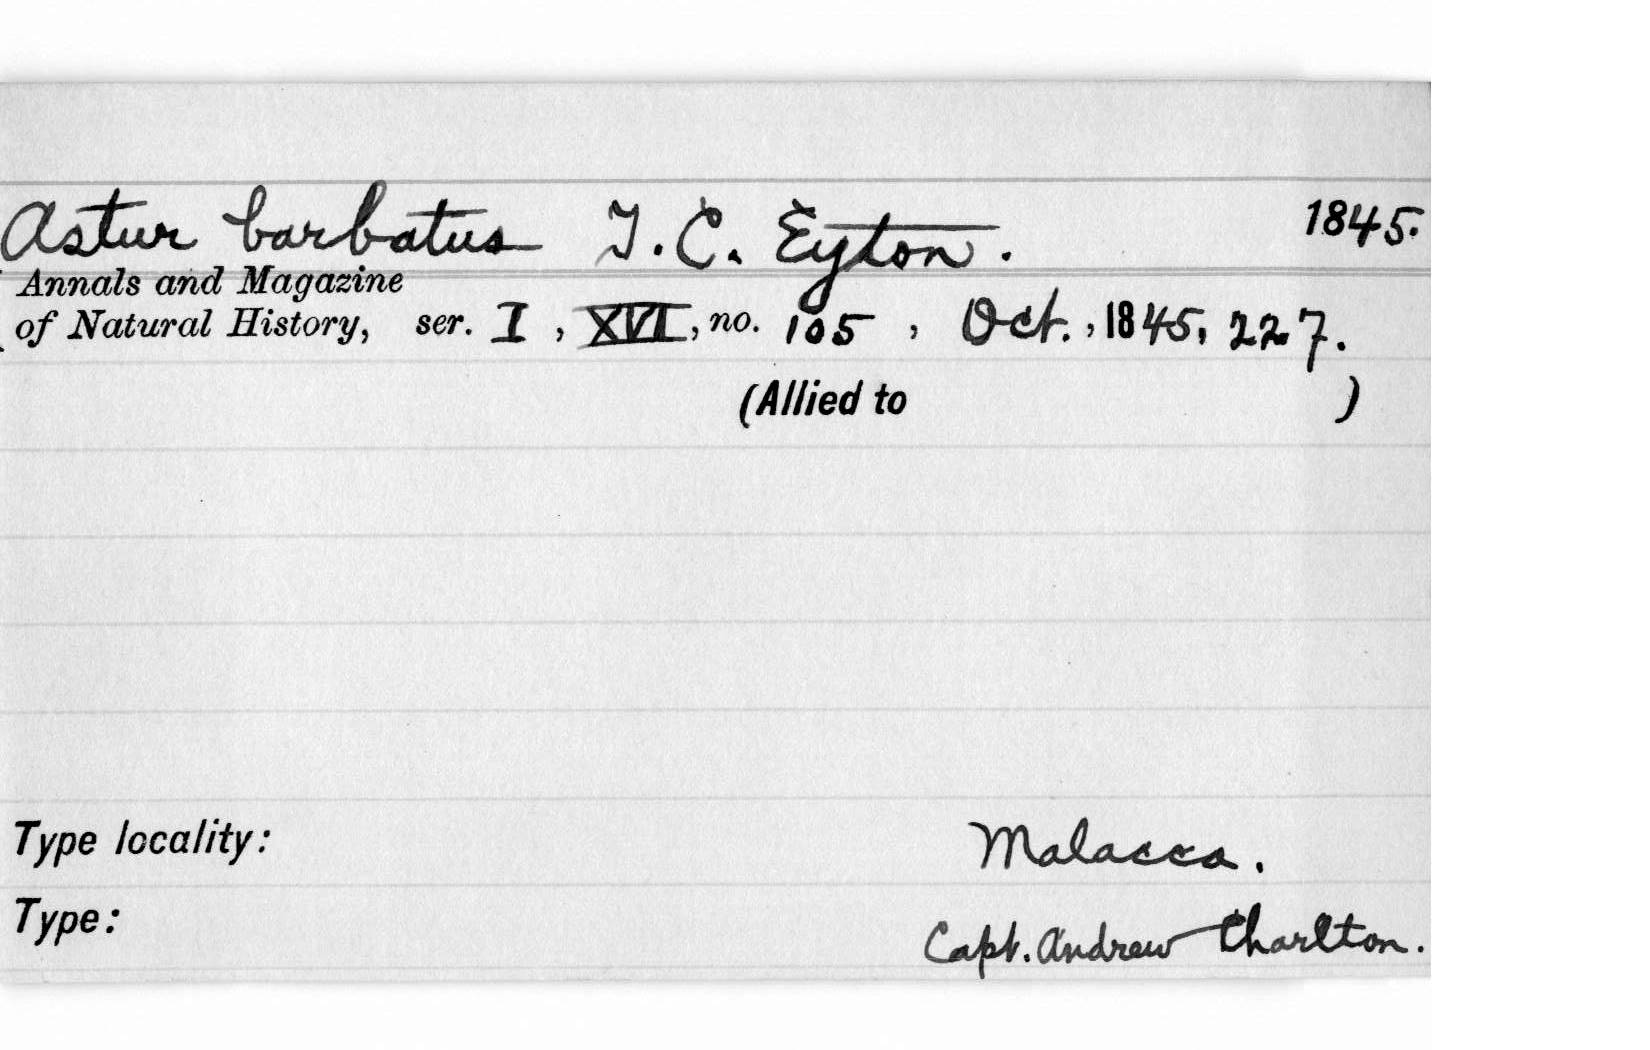 Astur barbatus T. C. Eyton. 1845.
Annals and Magazine
of Natural History, ser. I, XVI, no. 105, Oct., 1845, 227.
(Allied to )
Type locality: Malacca.
Type: Capt. Andrew Charlton.